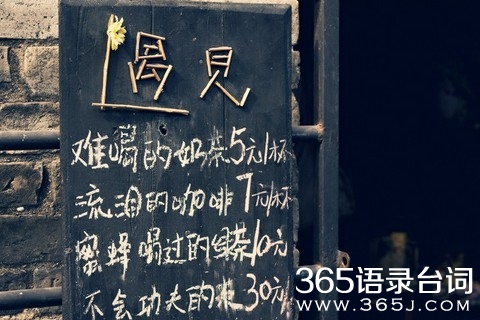 遇見
难喝的奶茶5元1杯
流泪的咖啡7元1杯
蜜蜂喝过的绿茶10元
不会功夫的 30元
365语录台词
WWW.365J.COM